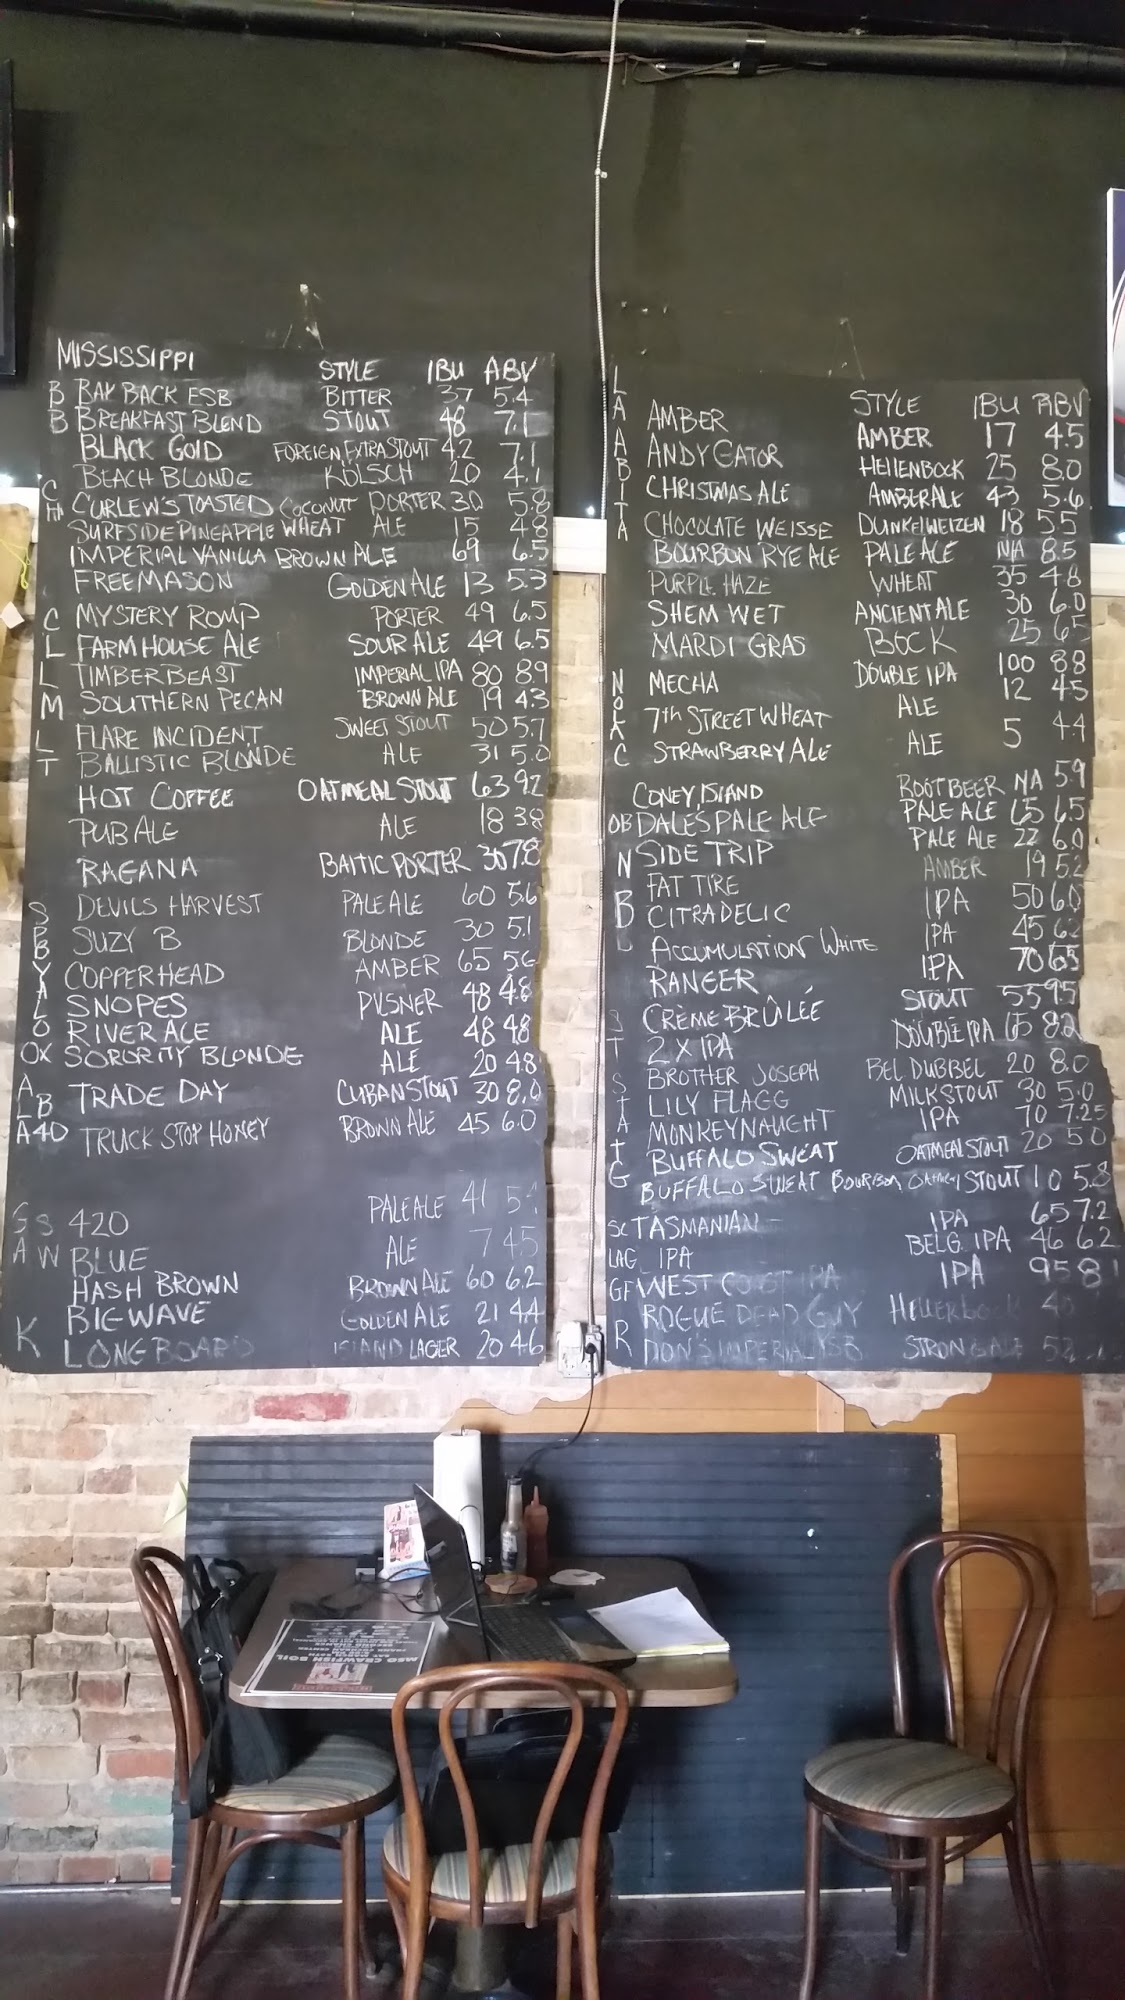 MISSISSIPPI STYLE IBU ABV
B BAY BACK ESB BITTER 37 5.4
B BREAKFAST BLEND STOUT 48 7.1
BLACK GOLD FOREIGN EXTRA STOUT 42 7.1
BEACH BLONDE KÖLSCH 20 4.1
CURLEW'S TOASTED COCONUT PORTER 30 5.8
SURFSIDE PINEAPPLE WHEAT ALE 15 4.8
IMPERIAL VANILLA BROWN ALE 69 6.5
FREEMASON GOLDEN ALE 13 5.3
C MYSTERY ROMP PORTER 49 6.5
L FARMHOUSE ALE SOUR ALE 49 6.5
L TIMBER BEAST IMPERIAL IPA 80 8.9
M SOUTHERN PECAN BROWN ALE 19 4.3
L FLARE INCIDENT SWEET STOUT 50 5.7
T BALLISTIC BLONDE ALE 31 5.0
HOT COFFEE OATMEAL STOUT 63 9.2
PUB ALE ALE 18 3.8
RAGANA BALTIC PORTER 30 7.8
S DEVILS HARVEST PALE ALE 60 5.6
P SUZY B BLONDE 30 5.1
B COPPERHEAD AMBER 65 5.6
Y SNOPES PILSNER 48 4.8
RIVER ALE ALE 48 4.8
OX SORORITY BLONDE ALE 20 4.8
TRADE DAY CUBAN STOUT 30 8.0
TRUCK STOP HONEY BROWN ALE 45 6.0
S 420 PALE ALE 41
A W BLUE ALE 7 4.5
HASH BROWN BROWN ALE 60 6.2
BIG WAVE GOLDEN ALE 21 4.4
K LONGBOARD ISLAND LAGER 20 4.6
STYLE IBU ABV
AMBER AMBER 17 4.5
ANDYGATOR HELLENBOCK 25 8.0
CHRISTMAS ALE AMBER ALE 43 5.6
CHOCOLATE WEISSE DUNKELWEIZEN 18 5.5
BOURBON RYE ALE PALE ALE N/A 8.5
PURPLE HAZE WHEAT 35 4.8
SHEM WET ANCIENT ALE 30 6.0
MARDI GRAS BOCK 25 6.5
MECHA DOUBLE IPA 100 8.8
7th STREET WHEAT ALE 12 4.5
STRAWBERRY ALE ALE 5 4.4
CONEY ISLAND ROOTBEER NA 5.9
OB DALES PALE ALE PALE ALE 65 6.5
SIDE TRIP PALE ALE 22 6.0
N FAT TIRE AMBER 19 5.2
B CITRADELIC IPA 50 6.0
ACCUMULATION WHITE IPA 45 6.2
RANGER IPA 70 6.5
CRÈME BRÛLÉE STOUT 55 9.5
2 X IPA DOUBLE IPA 65 8.2
BROTHER JOSEPH BEL DUBBEL 20 8.0
LILY FLAGG MILK STOUT 30 5.0
MONKEYNAUGHT IPA 70 7.25
BUFFALO SWEAT OATMEAL STOUT 20 5.0
BUFFALO SWEAT BOURBON OATMEAL STOUT 10 5.8
SC TASMANIAN IPA 65 7.2
LAG IPA BELG. IPA 46 6.2
GF WEST COAST IPA IPA 95 8.1
ROGUE DEAD GUY HELLERBOCK 40
R STRONG ALE 52
MBO CRAWFISH BOIL